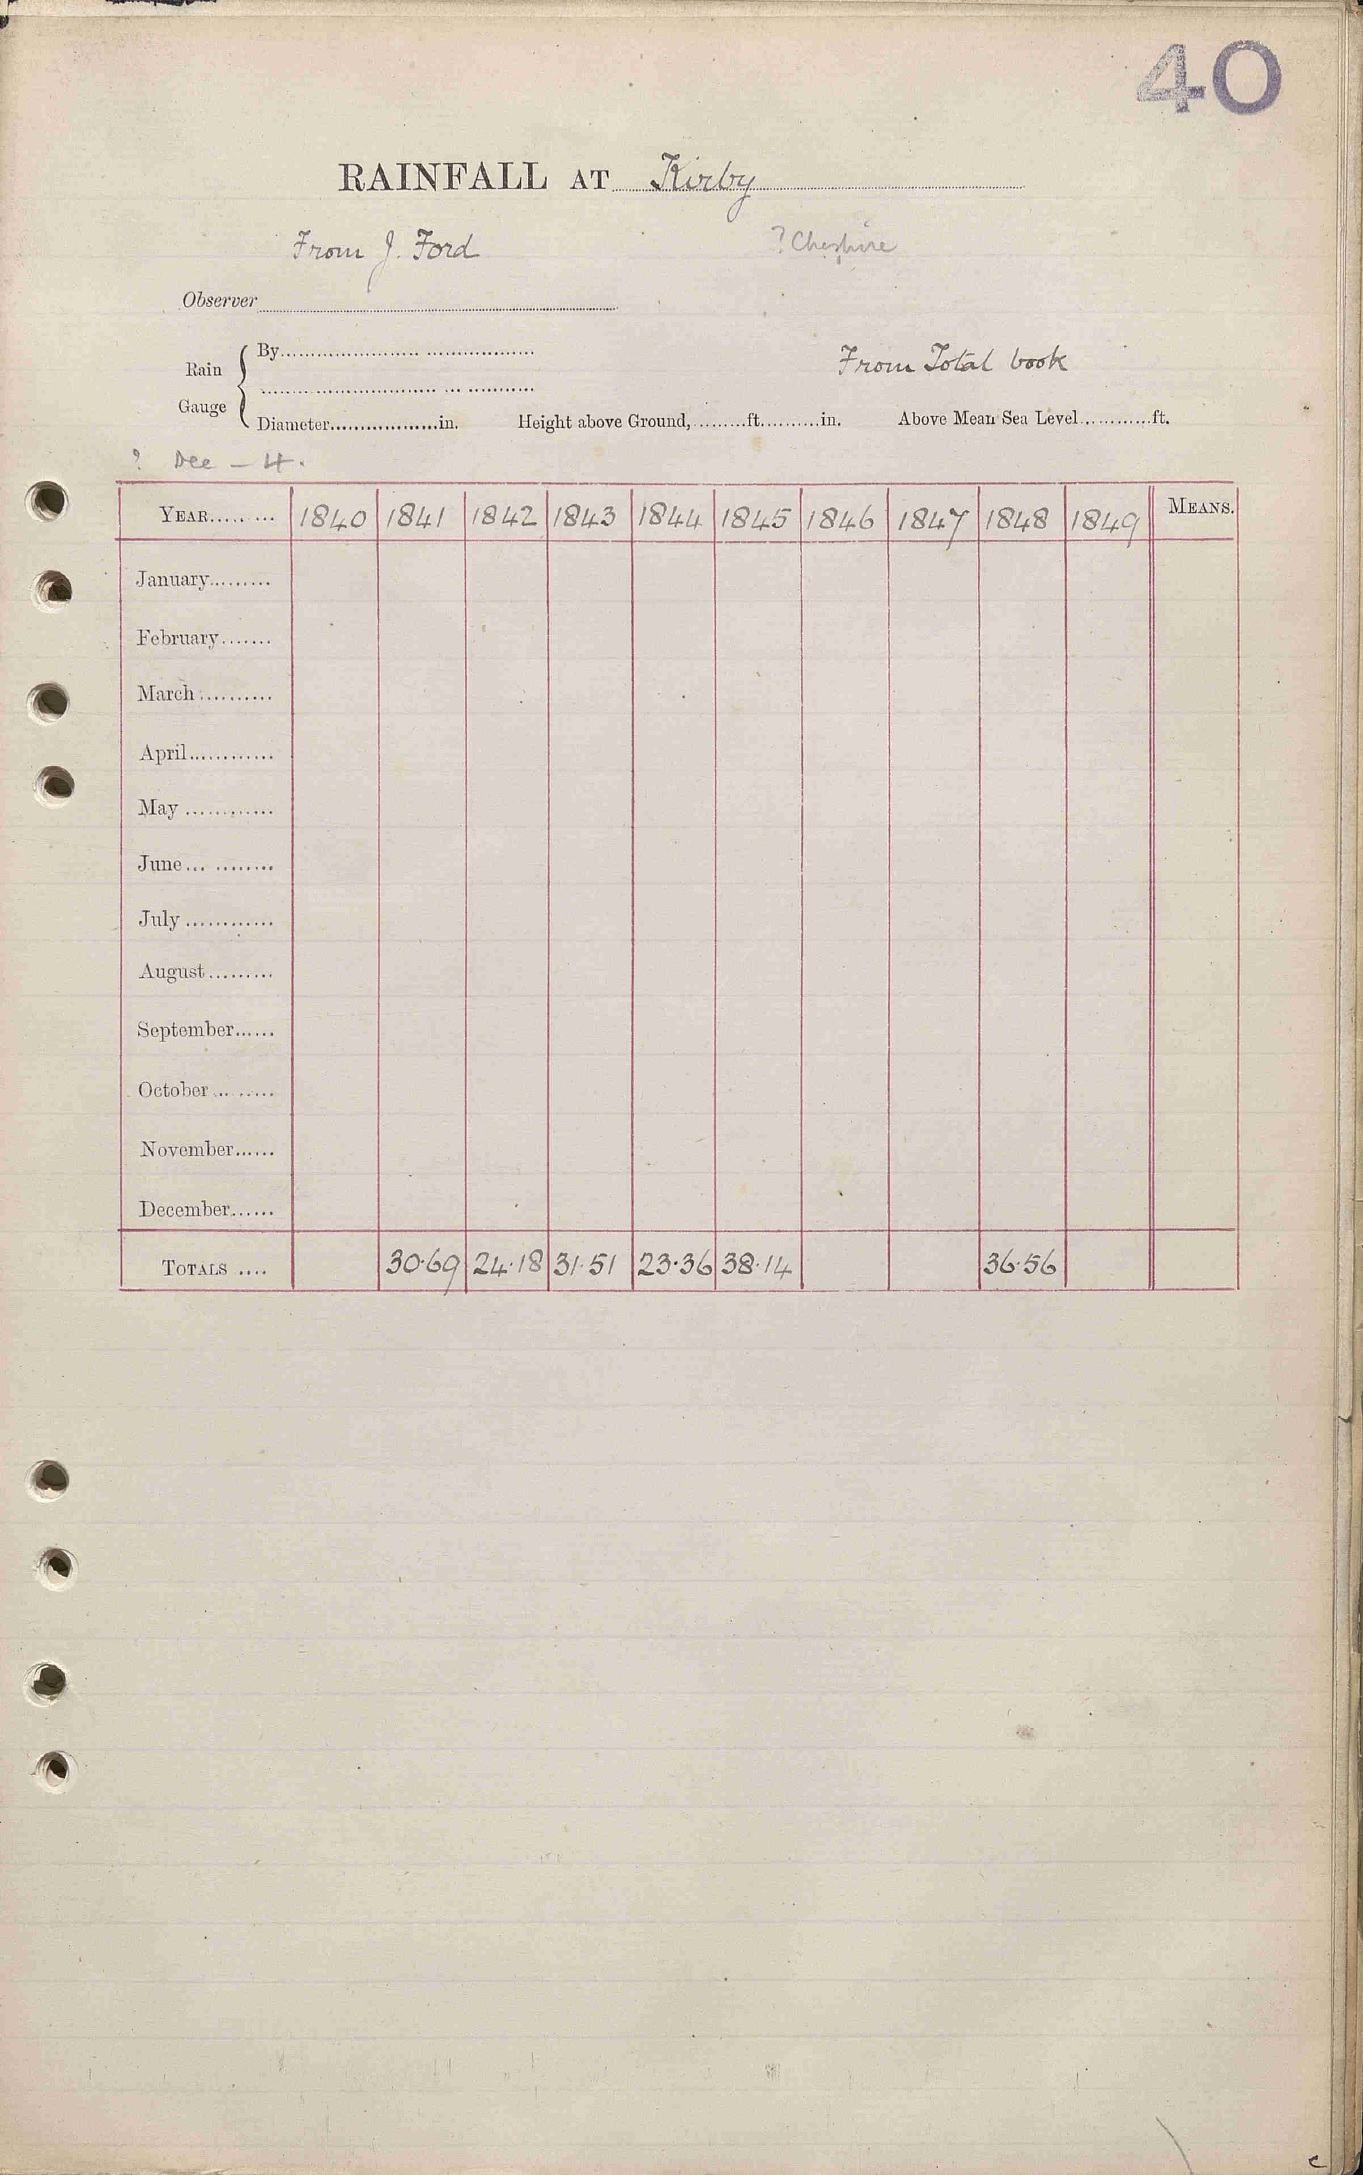 40
RAINFALL AT Kirby
From J. Ford ? Cheshire
Observer
Rain Gauge { By
From Total book
Diameter..................in. Height above Ground,.........ft..........in. Above Mean Sea Level............ft.
? Dee — 4.
YEAR......... 1840 1841 1842 1843 1844 1845 1846 1847 1848 1849 MEANS.
January.........
February.......
March..........
April............
May ............
June... ........
July ............
August.........
September......
October.........
November......
December......
TOTALS .... 30.69 24.18 31.51 23.36 38.14 36.56
c